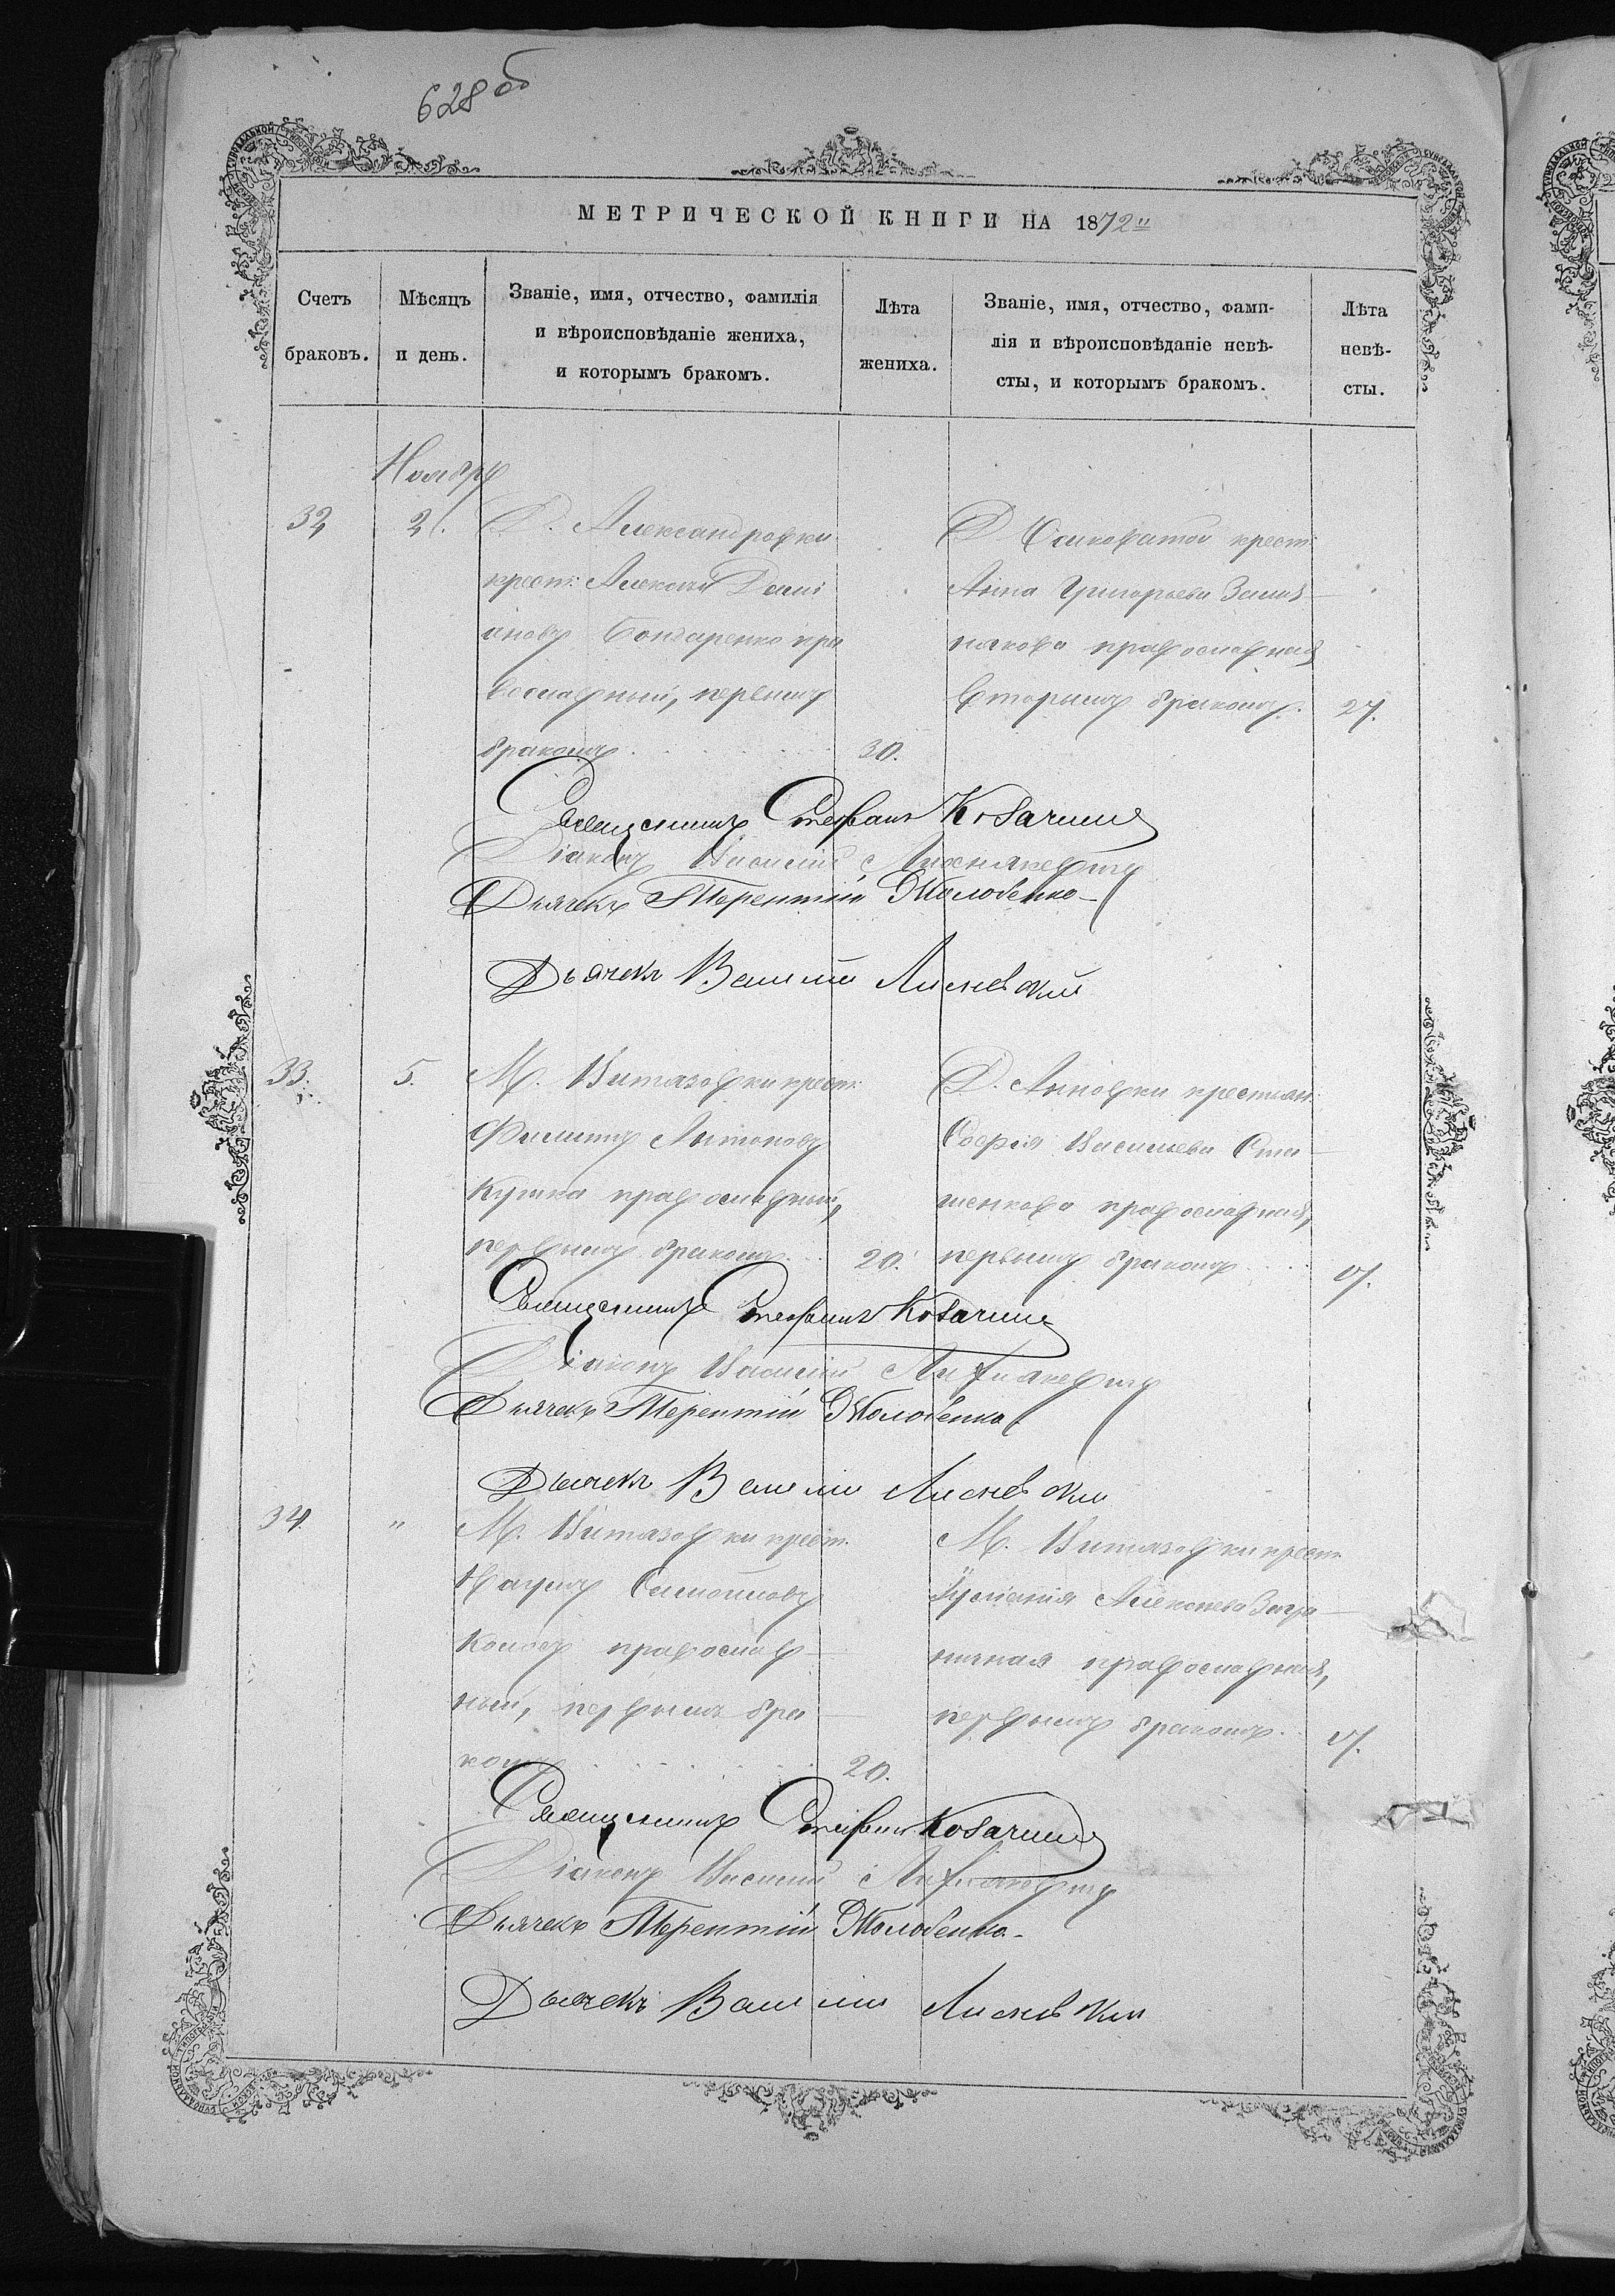 628 об
МЕТРИЧЕСКОЙ КНИГИ НА 1872й
Счетъ браковъ.
Мѣсяцъ и день.
Званіе, имя, отчество, фамилія
и вѣроисповѣданіе жениха,
и которымъ бракомъ.
Лѣта жениха.
Званіе, имя, отчество, фами-
лія и вѣроисповѣданіе невѣ-
сты, и которымъ бракомъ.
Лѣта невѣ-
сты.
Ноябрь
32 2.
Д. Александровки
крест: Алексѣй Деми
ановъ Бондаренко пра
вославный, первымъ
бракомъ 30.
Д. крест:
Анна Григорьева
православная
вторымъ бракомъ. 27.
Священникъ Стефанъ Козачинскій
Діаконъ Василій
Дьячекъ Терентій Жолобенко
Дьячекъ Василій Лисневскій
33. 5.
М. Витязовки крест:
Филиппъ Антоновъ
православный,
первымъ бракомъ 20.
Д. Анновки крестьян:
Софія Васильева Ста
шенкова православная,
первымъ бракомъ 17.
Священникъ Стефанъ Козачинскій
Діаконъ Василій
Дьячекъ Терентій Жолобенко
Дьячекъ Василій Лисневскій
34. "
М. Витязовки крест.
Наумъ Симоновъ
православ
ный, первымъ бра
комъ 20.
М. Витязовки крест.
Алексѣева Загра
ничная православная,
первымъ бракомъ 17.
Священникъ Стефанъ Козачинскій
Діаконъ Василій
Дьячекъ Терентій Жолобенко
Дьячекъ Василій Лисневскій